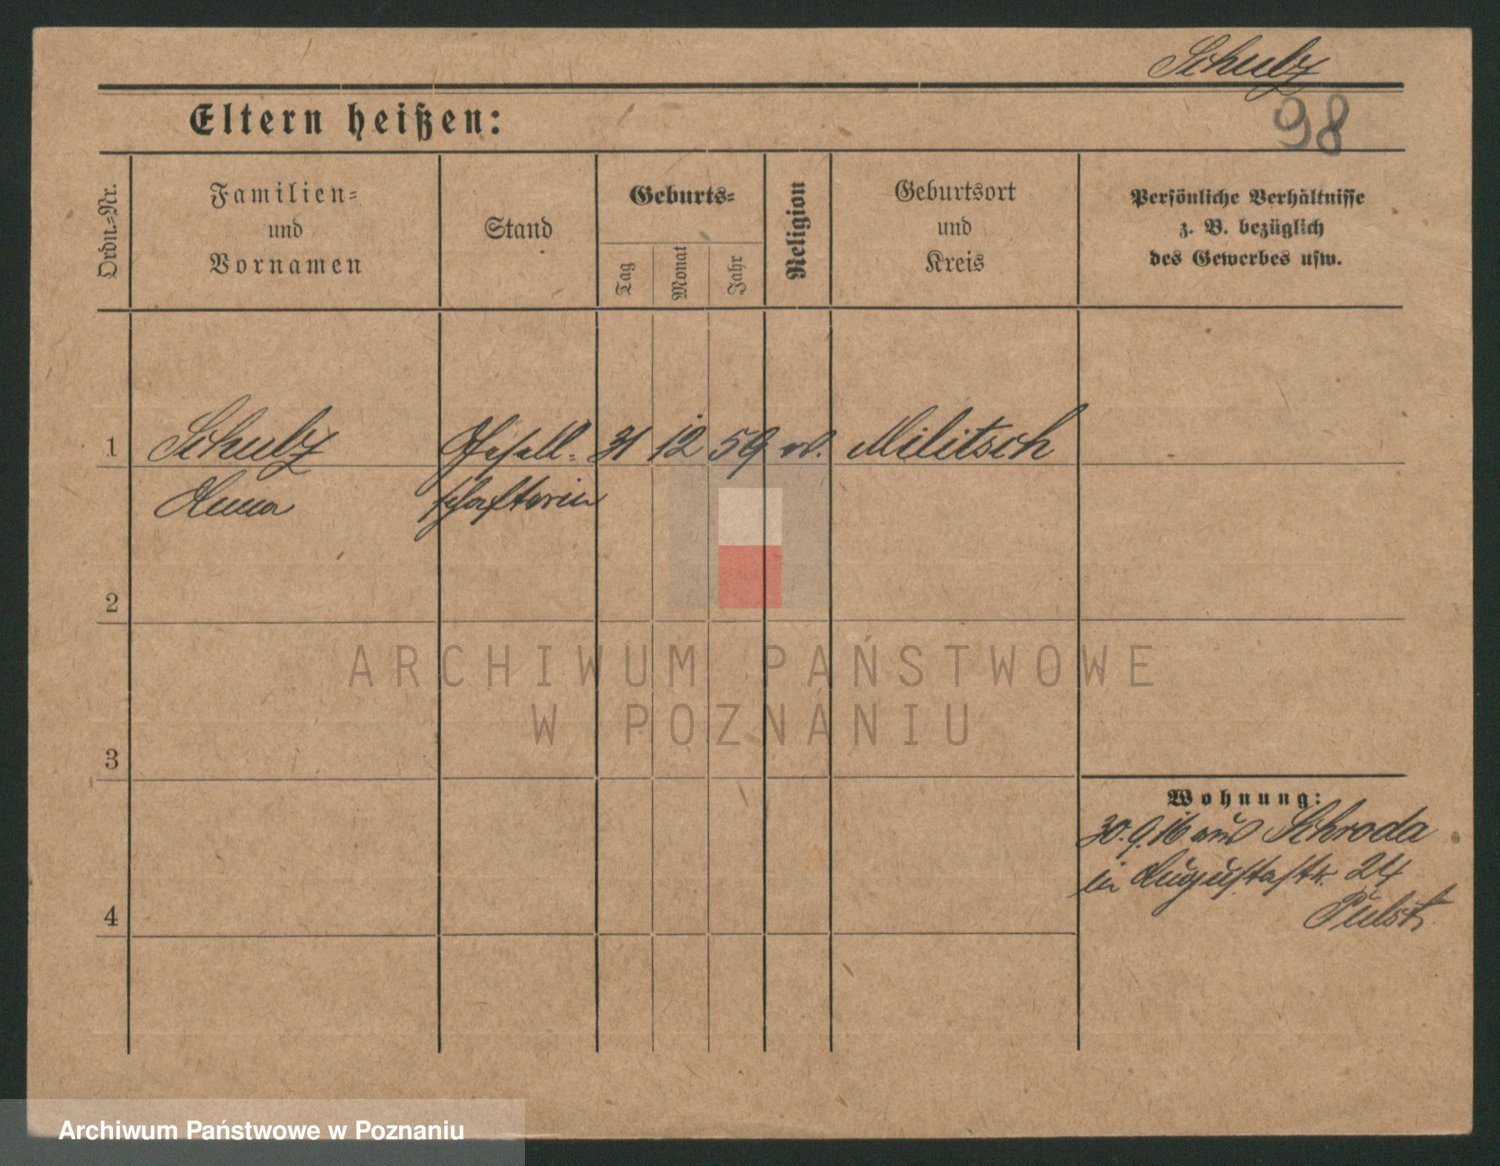 Schulz
98
Eltern heißen:
Ordn.-Nr.
Familien-
und
Vornamen
Stand
Geburts-
Tag
Monat
Jahr
Religion
Geburtsort
und
Kreis
Persönliche Verhältnisse
z. B. bezüglich
des Gewerbes usw.
1 Schulz Gesell- 31 12 59 Militsch
Anna schafterin
2
ARCHIWUM PAŃSTWOWE
W POZNANIU
3
Wohnung:
30.9.16 aus Schroda
in Augustastr. 24
4
Archiwum Państwowe w Poznaniu